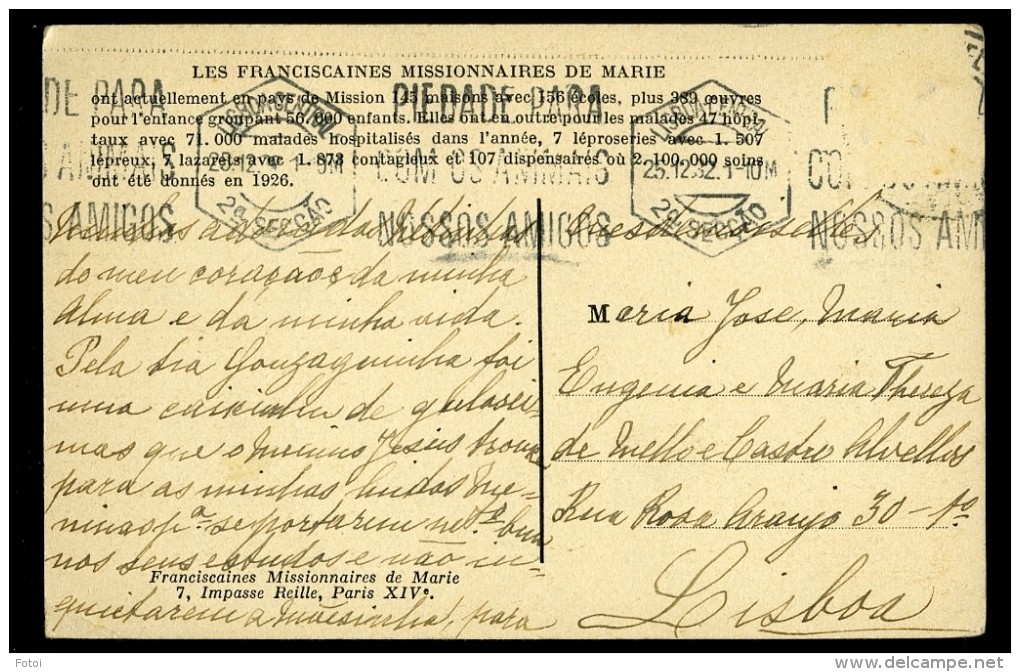 LES FRANCISCAINES MISSIONNAIRES DE MARIE
ont actuellement en pays de Mission 145 maisons avec 156 écoles, plus 389 œuvres
pour l'enfance groupant 56.000 enfants. Elles ont en outre pour les malades 47 hôpi-
taux avec 71.000 malades hospitalisés dans l'année, 7 léproseries avec 1.507
lépreux, 7 lazarets avec 1.873 contagieux et 107 dispensaires où 2.100.000 soins
ont été donnés en 1926.
DE PARA
S AMIGOS
LISBOA CENTRAL
2ª SECÇÃO
PIEDADE PARA
COM OS ANIMAIS
NOSSOS AMIGOS
LISBOA CENTRAL
25.12.32.1-10M
2ª SECÇÃO
P
CO
NOSSOS AMI
do meu coração da minha
Alma e da minha vida.
Pela tia Gonzaguinha foi
uma de gulosei-
mas que o Menino Jesus trouxe
para as minhas lindas Me-
ninas pª se portarem mtº bem
nos seus estudos e não in-
quietarem a Mãesinha, para
Franciscaines Missionnaires de Marie
7, Impasse Reille, Paris XIVe.
Maria Jose, Maria
Eugenia e Maria Thereza
de Mello e Castro Alvellos
Rua Rosa Araujo 30-1º
Lisboa
Fotoi
delcampe.net